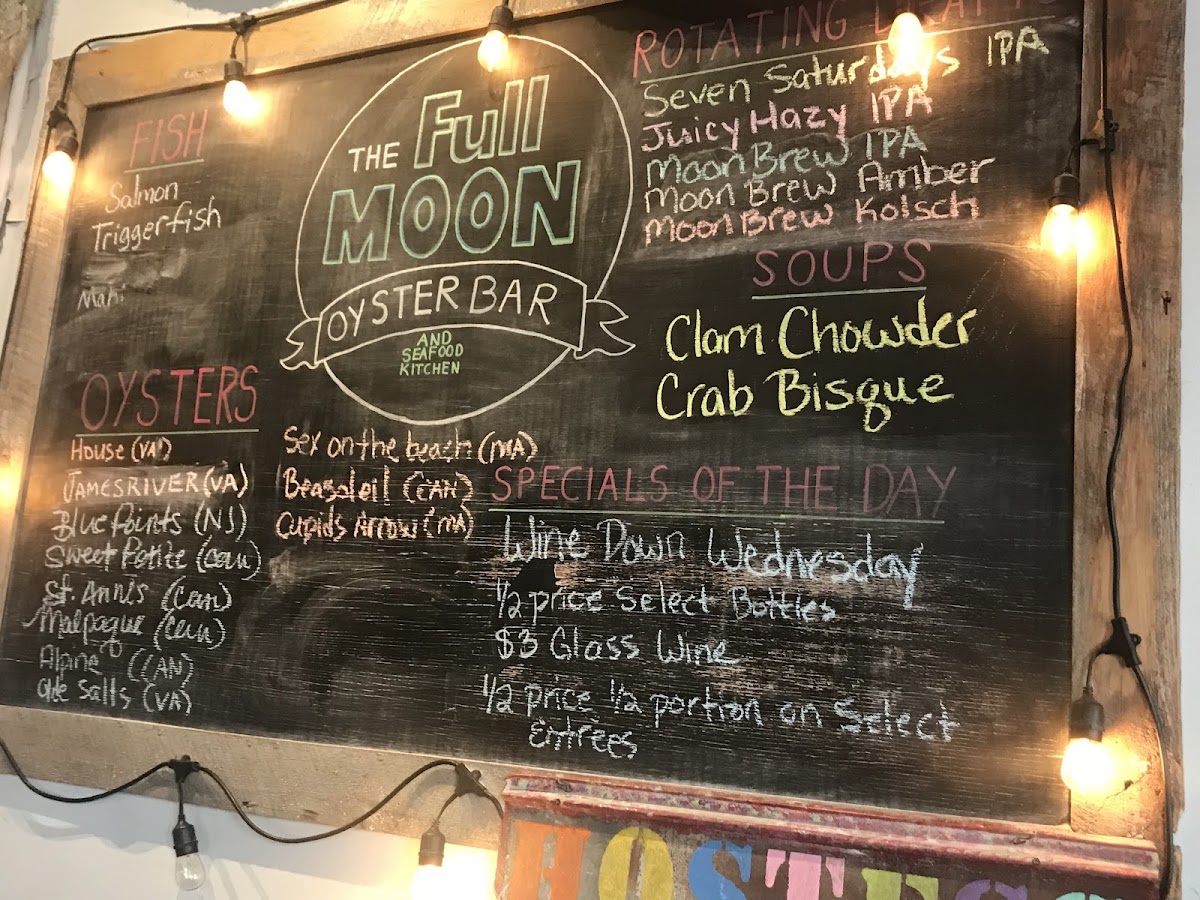 THE Full
MOON
OYSTER BAR
AND
SEAFOOD
KITCHEN
FISH
Salmon
Triggerfish
Mahi
OYSTERS
House (VA)
JAMES RIVER (VA)
Blue Points (NJ)
Sweet Petite (Can)
St. Annis (Can)
Malpaque (Can)
Alpine (CAN)
Olde Salts (VA)
Sex on the beach (MA)
Beasoleil (CAN)
Cupids Arrow (MA)
ROTATING DRAFT
Seven Saturdays IPA
Juicy Hazy IPA
Moon Brew IPA
Moon Brew Amber
Moon Brew Kolsch
SOUPS
Clam Chowder
Crab Bisque
SPECIALS OF THE DAY
Wine Down Wednesday
1/2 price Select Bottles
$3 Glass Wine
1/2 price 1/2 portion on Select
Entrees
HOSTESS